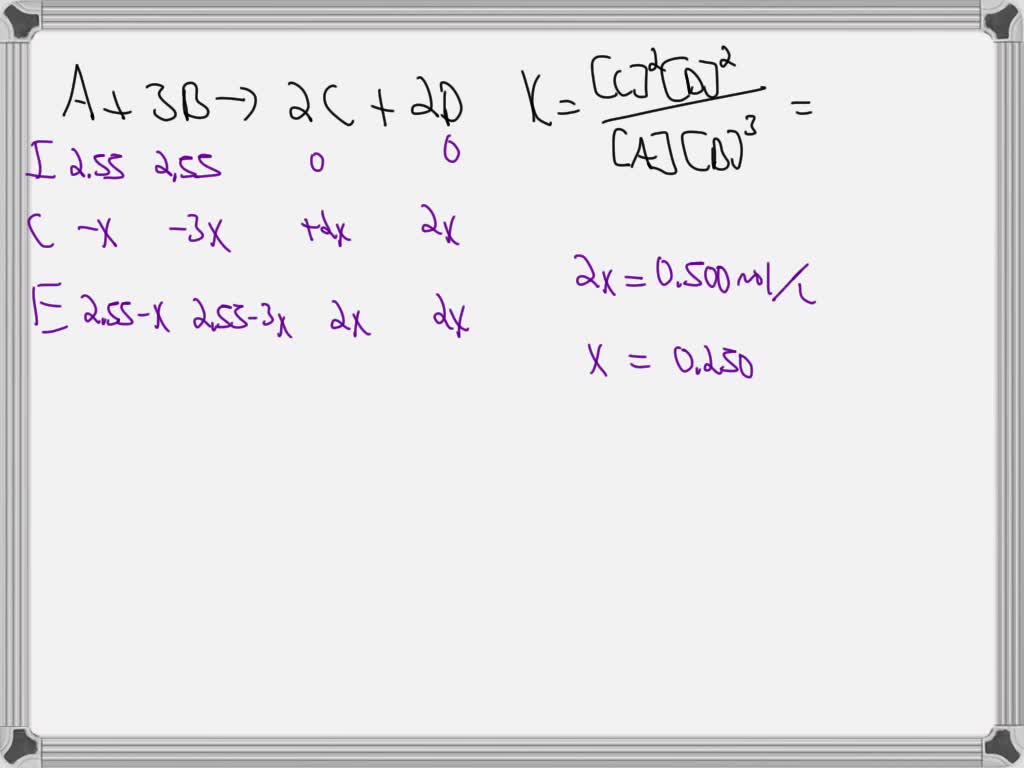 A + 3B → 2C + 2D K = [C]²[D]² / [A][B]³ =
I 2.55 2.55 0 0
C -x -3x +2x 2x
E 2.55-x 2.55-3x 2x 2x
2x = 0.500 mol/L
x = 0.250